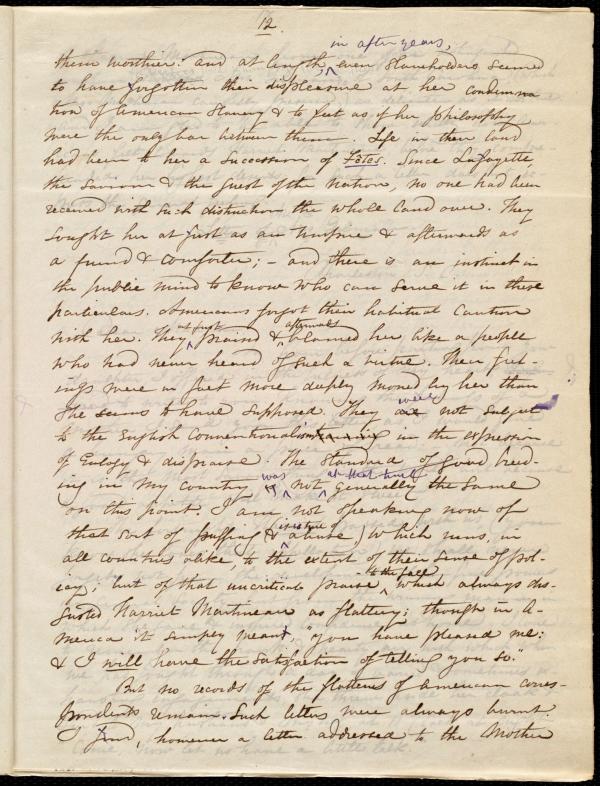 12.
in after years,
them worthier: and at length, ^ even Slaveholders seemed
to have forgotten their displeasure at her condemna
tion of American Slavery & to feel as if her philosophy
were the only bar between them. Life in their land
had been to her a succession of Fêtes. Since Lafayette,
the Saviour & the guest of the nation, no one had been
received with such distinction the whole land over. They
sought her at first as an umpire & afterwards as
a friend & comforter; – and there is an instinct in
the public mind to know who can serve it in these
particulars. Americans forgot their habitual caution
with her. They ^ at first praised & afterwards blamed her, like a people
who had never heard of such a virtue. Their feel-
ings were in fact more deeply moved by her than
she seems to have supposed. They are were not subject
to the English Conventionalism in the expression
of Eulogy & dispraise. The Standard of good breed-
ing in my country is was ^ not ^ at that time generally the same
on this point. I am not speaking now of
that sort of puffing & ^ abuse) which runs, in
all countries alike, to the extent of their sense of pol-
icy; but of that uncritical praise ^ to the face which always dis-
gusted Harriet Martineau as flattery: though in A-
merica it simply meant, "you have pleased me:
& I will have the satisfaction of telling you so."
But no records of the flatteries of American corres-
pondents remain. Such letters were always burnt.
I find, however a letter addressed to the Mother